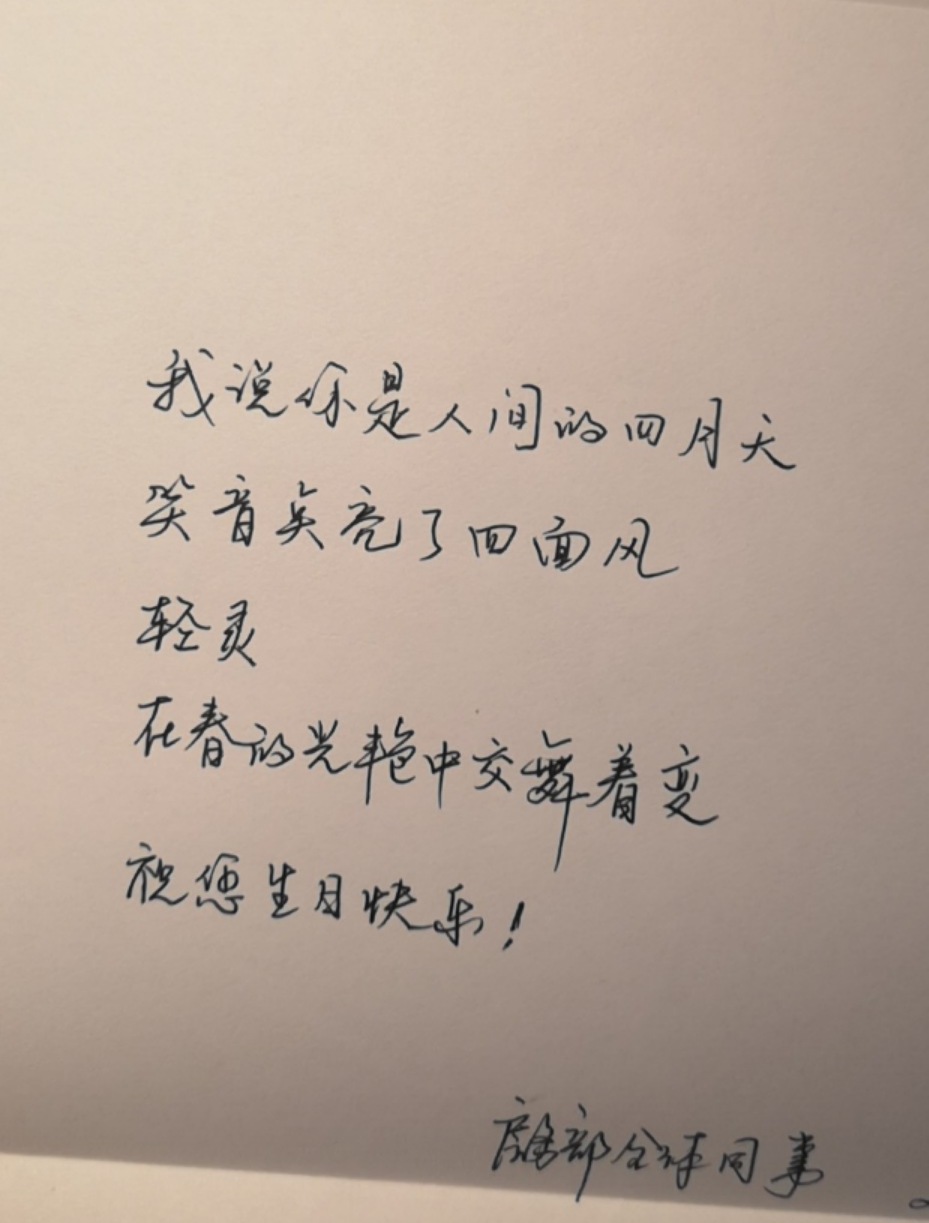 我说你是人间的四月天
笑音点亮了四面风
轻灵
在春的光艳中交舞着变
祝您生日快乐！
房务部全体同事